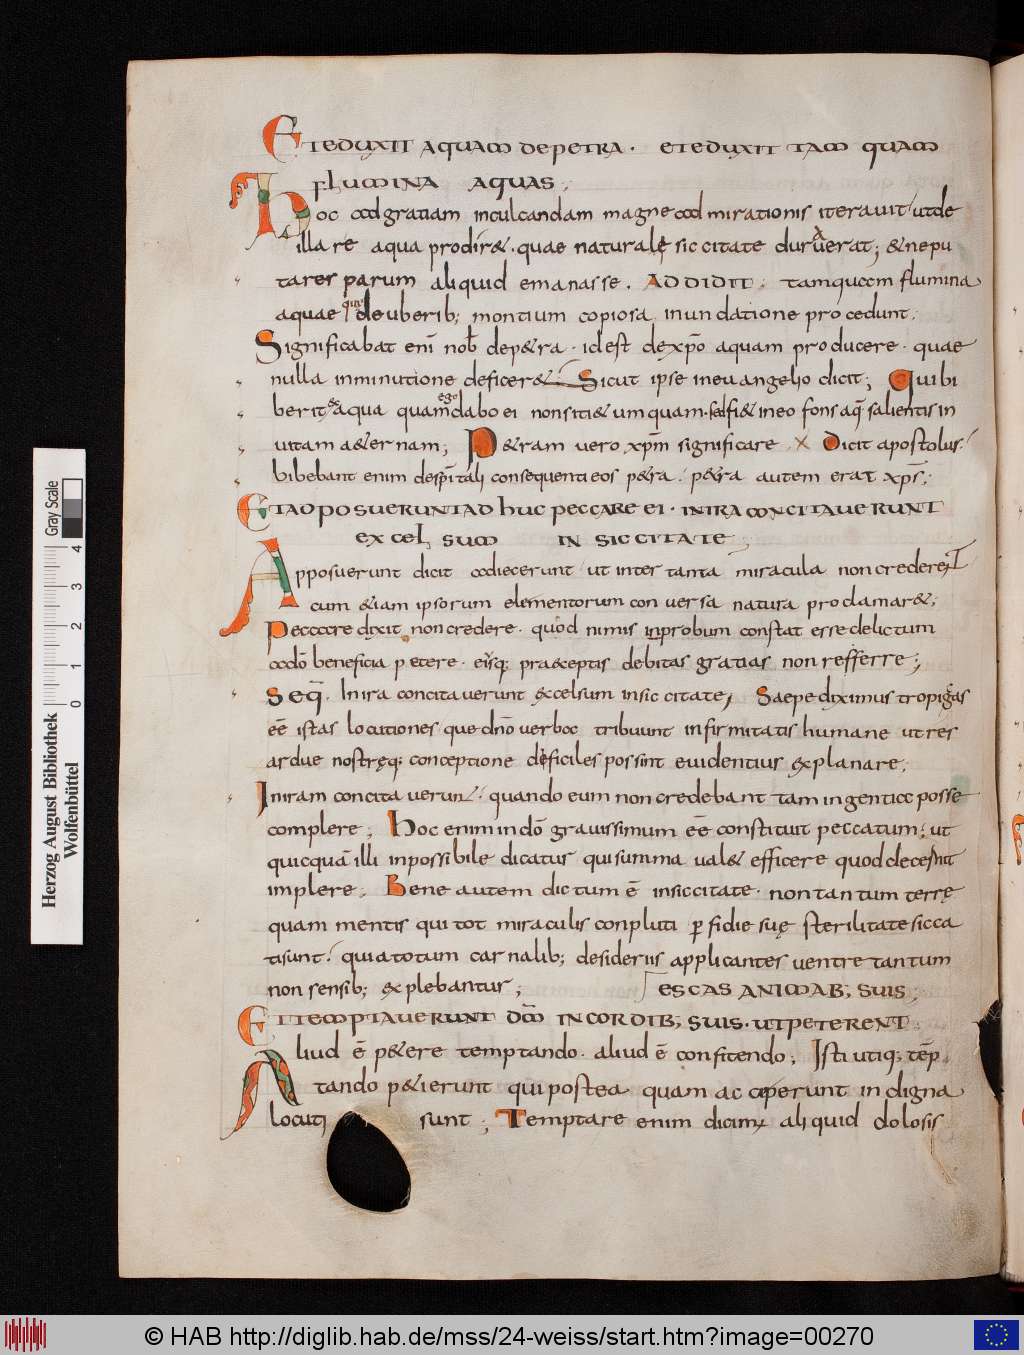 ETEDUXIT AQUAM DEPETRA. ETEDUXIT TAMQUAM
FLUMINA AQUAS;
Hoc ad gratiam inculcandam magne admirationis iterauit ut de
illa re aqua prodir&. quae naturale siccitate duruerat; & ne pu
tares parum aliquid emanasse. ADDIDIT; tamquam flumina
aquae que de uberib; montium copiosa inundatione procedunt;
Significabat enī nob dep&ra. id est de xp̄o aquam producere. quae
nulla inminutione deficer&. Sicut ipse in euangelio dicit; Qui bi
berit de aqua quam ego dabo ei non siti& umquam. sed fi& in eo fons aq̄ salientis in
uitam a&ernam; P&ram uero xp̄m significare Dicit apostolus.
bibebant enim de sp̄itali consequenti eos p&ra. p&ra autem erat xp̄s;
ETADPOSUERUNT ADHUC PECCARE EI. IN IRA CONCITAUERUNT
EXCELSUM IN SICCITATE;
Apposuerunt dicit adiecerunt ut inter tanta miracula non crederent
cum &iam ipsorum elementorum conuersa natura proclamar&;
Peccare dixit non credere. quod nimis inprobum constat esse delictum
a dō beneficia petere. eisq; praeceptis debitas gratias non referre;
Seq̄. In ira concitauerunt excelsum in siccitate; Saepe diximus tropicas
eē istas locutiones que dn̄o uerba tribuunt infirmitatis humane ut res
ardue nostręq; conceptione deficiles possint euidentius explanare;
In iram concitauerunt. quando eum non credebant tam ingentia posse
complere; Hoc enim in dō grauissimum eē constituit peccatum; ut
quicquā illi inpossibile dicatur qui summa ual& efficere quod decernit
implere; Bene autem dictum ē in siccitate. non tantum terrę
quam mentis qui tot miraculis conpluti perfidie suę sterilitate sicca
ti sunt. quia totum carnalib; desideriis applicantes uentre tantum
non sensib; explebantur; ESCAS ANIMAB; SUIS;
ETTEMPTAUERUNT DM̄ IN CORDIB; SUIS. UT PETERENT
Aliud ē p&ere temptando. aliud ē confitendo; Isti utiq; tēp
tando p&ierunt qui postea quam acceperunt indigna
locuti sunt; Temptare enim dicimur aliquid dolosis
Herzog August Bibliothek
Wolfenbüttel
Gray Scale
0 1 2 3 4
© HAB http://diglib.hab.de/mss/24-weiss/start.htm?image=00270